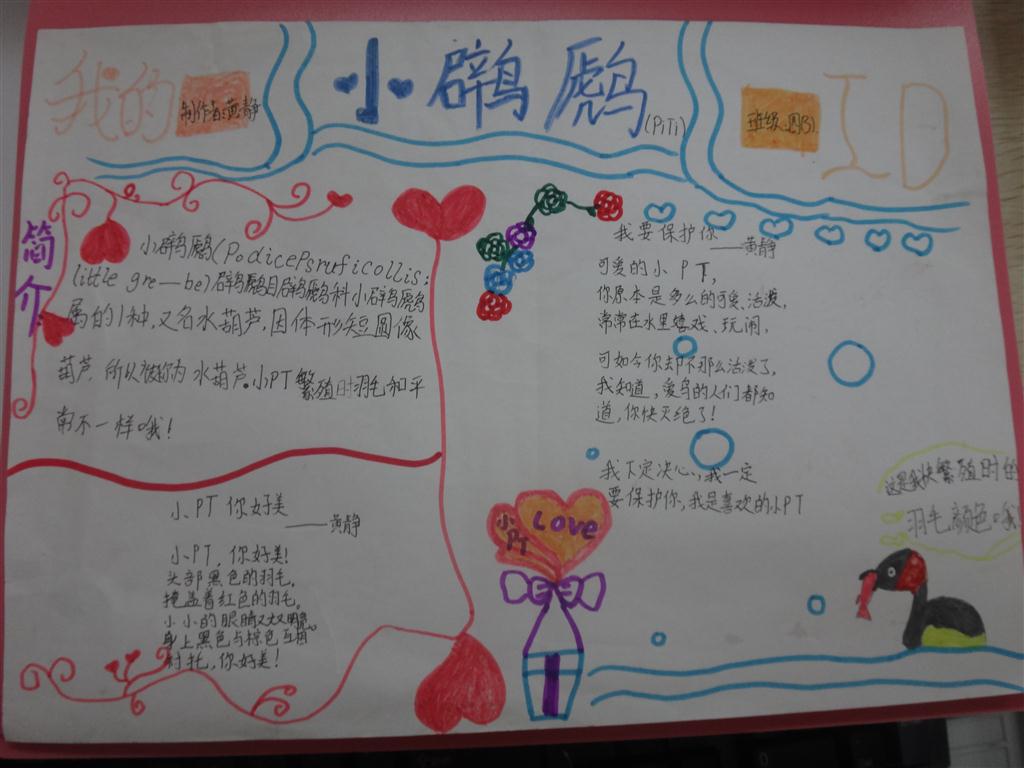 我的
制作者:黄静
小䴙䴘
(PiTi)
班级:四(3)
ID
简介
小䴙䴘(PodicePsruficollis;
little gre—be)䴙䴘目䴙䴘科小䴙䴘
属的1种,又名水葫芦,因体形短圆像
葫芦,所以被称为水葫芦。小PT繁殖时羽毛和平
常不一样哦!
小PT 你好美
——黄静
小PT,你好美!
头部黑色的羽毛,
掩盖着红色的羽毛。
小小的眼睛又大又明亮。
身上黑色与棕色互相
衬托,你好美!
我要保护你
——黄静
可爱的小PT,
你原本是多么的可爱、活泼,
常常在水里嬉戏、玩闹,
可如今你却不那么活泼了,
我知道,爱鸟的人们都知
道,你快灭绝了!
我下定决心,我一定
要保护你,我是喜欢的小PT
小PT
Love
这是我快繁殖时的
羽毛颜色哦!